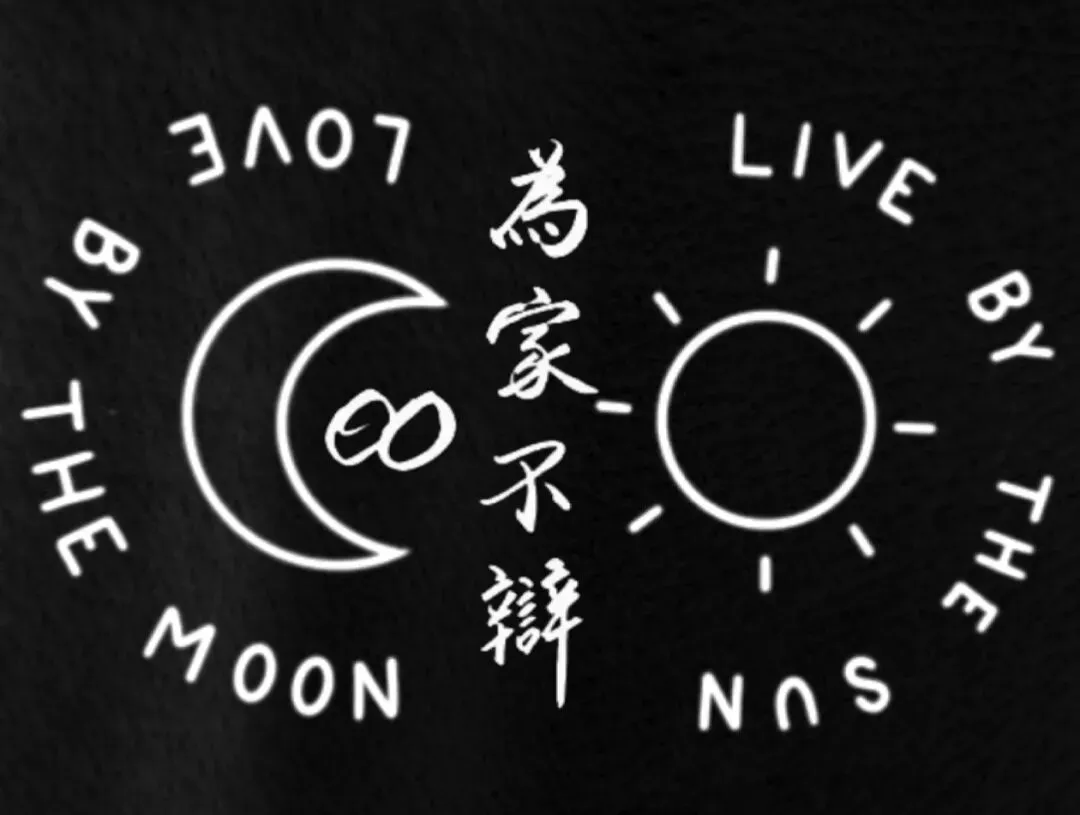 LOVE BY THE MOON
∞
為家不辯
LIVE BY THE SUN